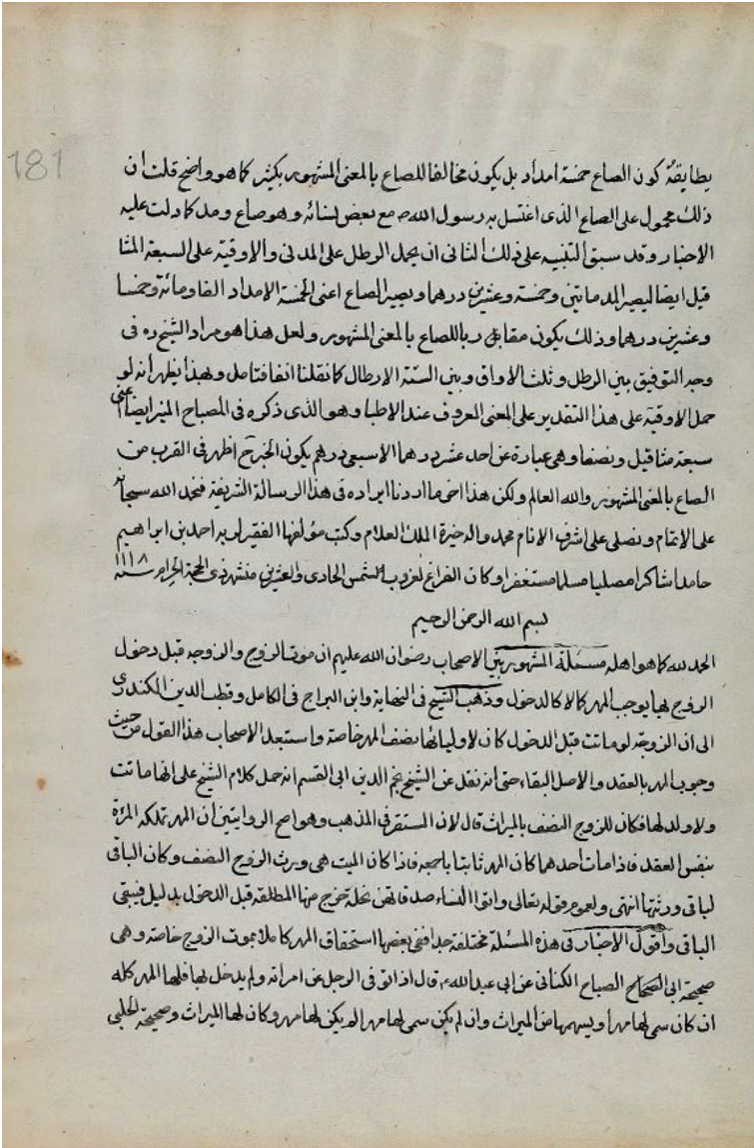 181
يطابقه كون الصاع خمسة امداد بل يكون مخالفا للصاع بالمعنى المشهور بكثير كما هو واضح قلت ان
ذلك محمول على الصاع الذى اغتسل به رسول الله ص مع بعض نسائه وهو صاع ومد كما دلت عليه
الاخبار وقد سبق التنبيه على ذلك الثانى ان يحمل الرطل على المدنى والاوقية على السبعة المثا
قيل ايضا ليصير المد مائتين وخمسة وعشرين درهما ويصير الصاع اعنى الخمسة الامداد الفا ومائة وخمسا
وعشرين درهما وذلك يكون مقاربا للصاع بالمعنى المشهور ولعل هذا هو مراد الشيخ ره فى
وجه التوفيق بين الرطل وثلث الاواق وبين الستة الارطال كما نقلنا انفا فتامل وبهذا يظهر انه لو
حمل الاوقية على هذا التقدير على المعنى المعروف عند الاطبا وهو الذى ذكره فى المصباح المنير ايضا اعنى
سبعة مثاقيل ونصفا وهى عبارة عن احد عشر درهما الا سبعى درهم يكون الخبر ح اظهر فى القرب من
الصاع بالمعنى المشهور والله العالم ولكن هذا اخر ما اردنا ايراده فى هذا الرسالة الشريفة فنحمد الله سبحانه
على الاتمام ونصلى على اشرف الانام محمد واله خيرة الملك العلام وكتب مؤلفها الفقير لربه احمد بن ابراهيم
حامدا شاكرا مصليا مسلما مستغفرا وكان الفراغ لغروب الشمس الحادى والعشرين من شهر ذى الحجة الحرام سنة ١١١٨
بسم الله الرحمن الرحيم
الحمد لله كما هو اهله مسئلة المشهور بين الاصحاب رضوان الله عليهم ان موت الزوج والزوجة قبل دخول
الزوج بها يوجب المهر كاملا كالدخول وذهب الشيخ فى النهاية وابن البراج فى الكامل وقطب الدين الكندرى
الى ان الزوجة لو ماتت قبل الدخول كان لاوليائها نصف المهر خاصة واستبعد الاصحاب هذا القول من حيث
وجوب المهر بالعقد والاصل البقاء حتى انه نقل عن الشيخ نجم الدين ابى القسم انه حمل كلام الشيخ على انها ماتت
ولا ولد لها فكان للزوج النصف بالميراث قال لان المستقر فى المذهب وهو اصح الروايتين ان المهر تملكه المرئة
بنفس العقد فاذا مات احدهما كان المهر ثابتا باجمعه فاذا كان الميت هى ورث الزوج النصف وكان الباقى
لباقى ورثتها انتهى ولعموم قوله تعالى واتوا النساء صدقاتهن نحلة خرج منها المطلقة قبل الدخول بدليل فيبقى
الباقى واقول الاخبار فى هذه المسئلة مختلفة جدا ففى بعضها استحقاق المهر كاملا بموت الزوج خاصة وهى
صحيحة ابى الصباح الكنانى عن ابى عبد الله ع قال اذا توفى الرجل عن امراته ولم يدخل بها فلها المهر كله
ان كان سمى لها مهرا وسهمها من الميراث وان لم يكن سمى لها مهرا لم يكن لها مهر وكان لها الميراث وصحيحة الحلبى